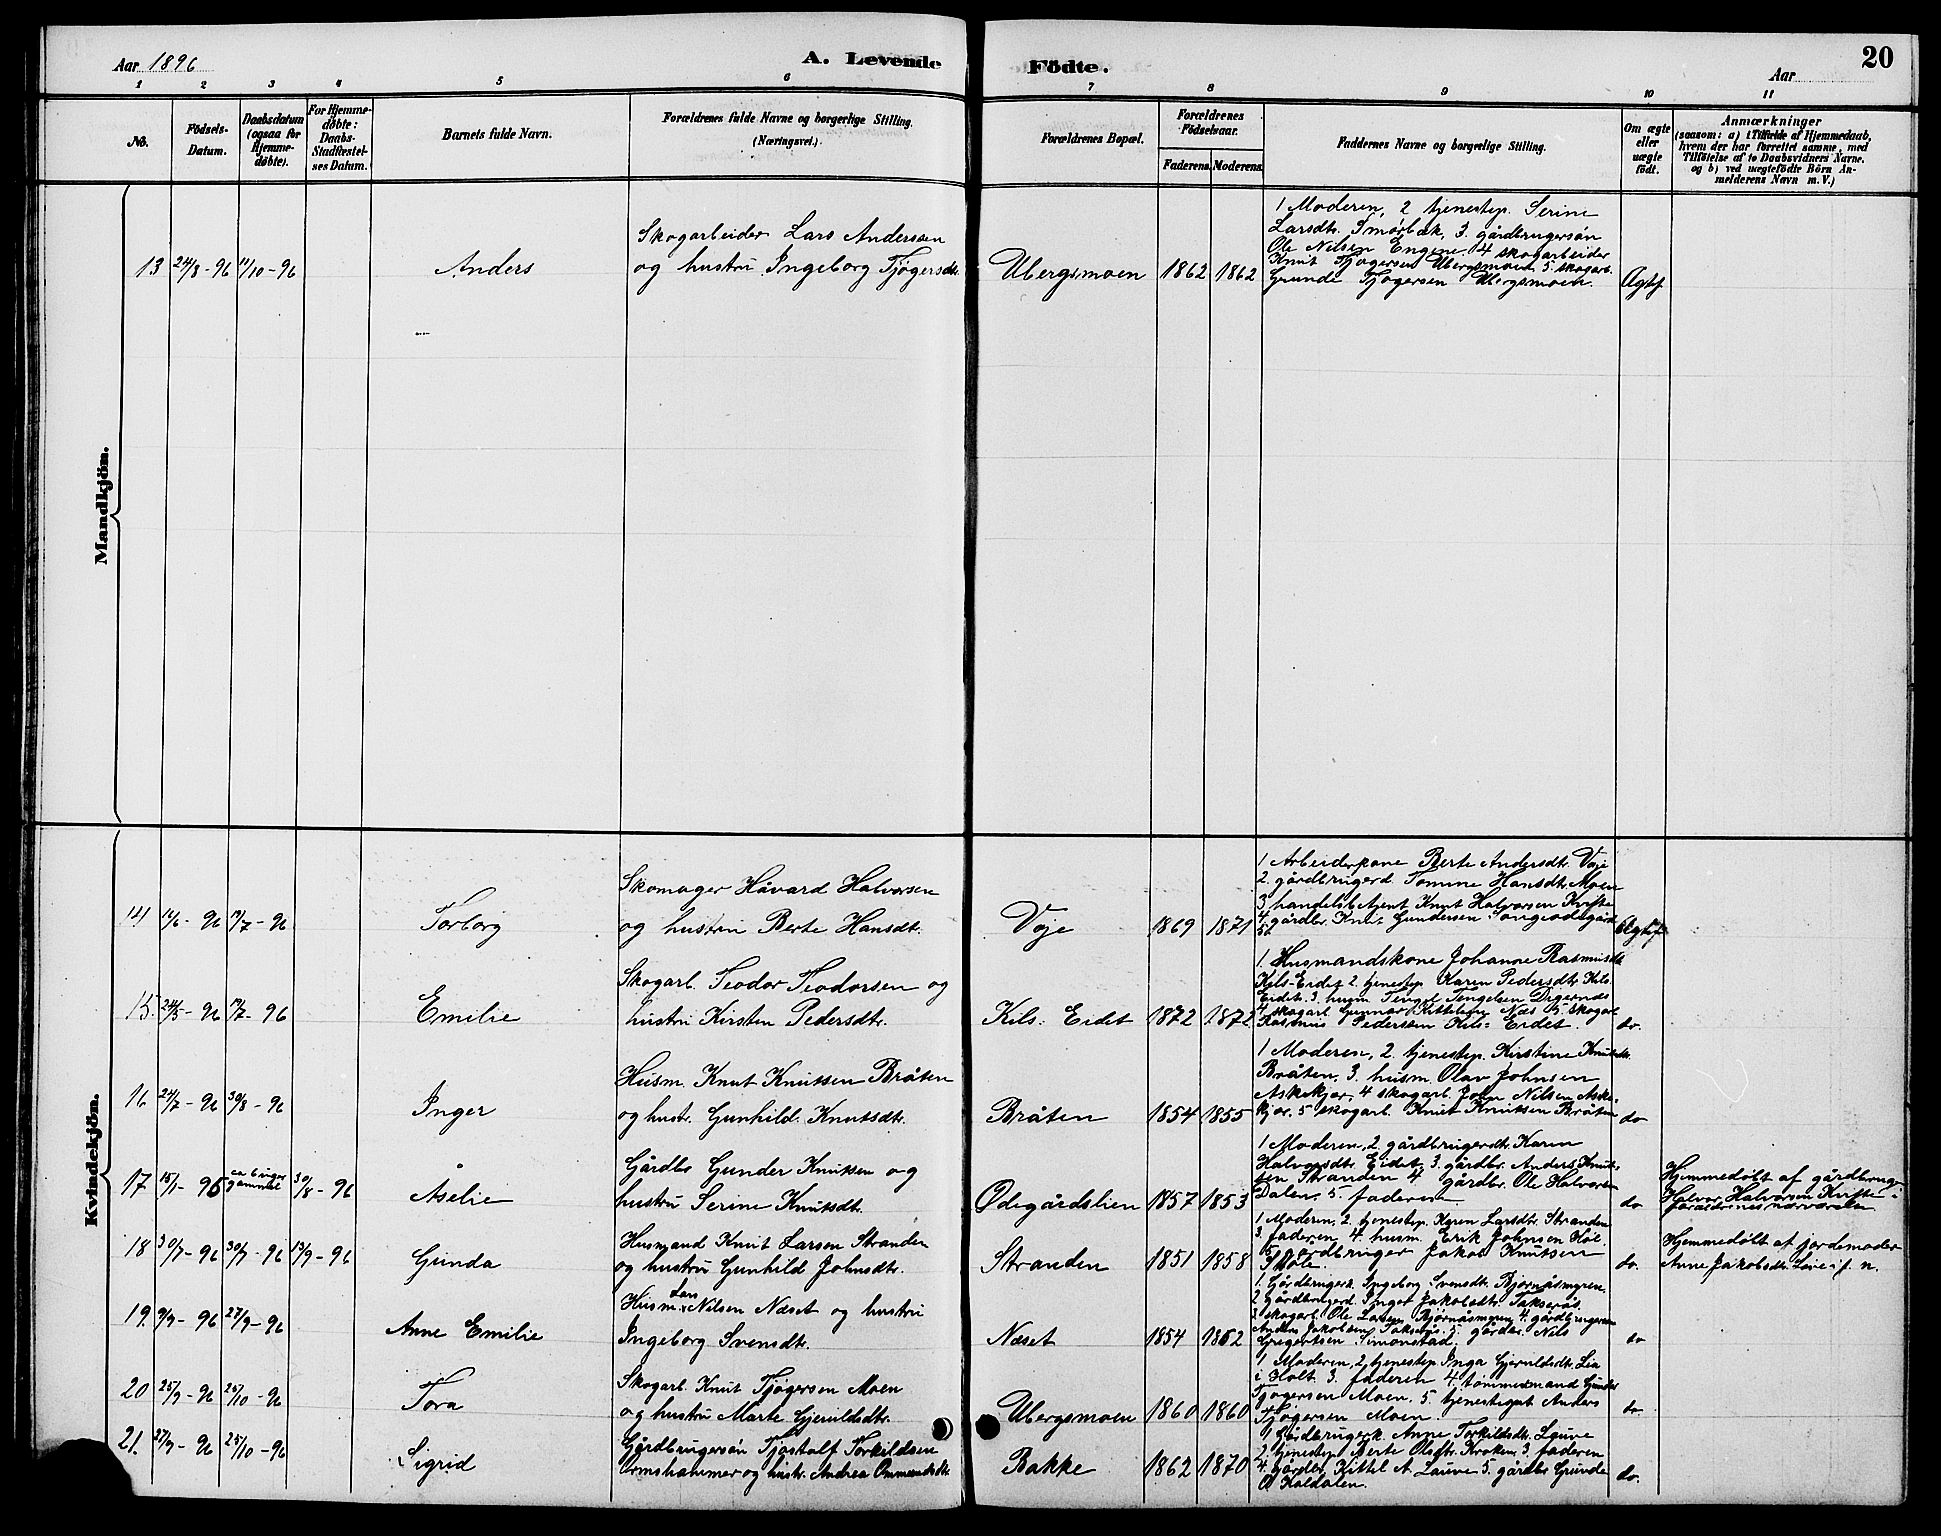 20
Aar 1896
A. Levende Födte.
Aar
1 2 3 4 5 6 7 8 9 10 11
No.
Födsels-
Datum.
Daabsdatum
(ogsaa for
Hjemme-
døbte).
For Hjemme-
døbte:
Daabs-
Stadfæstel-
ses Datum.
Barnets fulde Navn.
Forældrenes fulde Navne og borgerlige Stilling.
(Næringsvei.)
Forældrenes Bopæl.
Forældrenes
Födselsaar.
Faderens. Moderens.
Faddernes Navne og borgerlige Stilling.
Om ægte
eller
uægte
födt.
Anmærkninger
(saasom: a) i Tilfælde af Hjemmedaab,
hvem der har forrettet samme, med
Tilföielse af to Daabsvidners Navne.
og b) ved uægtefödte Börn An-
melderens Navn m. V.)
Mandkjön.
13 24/8-96 11/10-96
Anders
Skogarbeider Lars Anderssen
og hustru Ingeborg Tjøgersdtr.
Ubergsmoen 1862 1862
1 Moderen, 2 tjenestep. Serine
Larsdtr. Smørbæk, 3. gårdbrugersøn
Ole Nilsen Engene 4 skogarbeider
Knut Tjøgersen Ubergsmoen 5. skogarb.
Grunde Tjøgersen Ubergsmoen.
Ægtef.
Kvindekjön.
14 14/6-96 19/7-96
Torborg
Skomager Håvard Halvorsen
og hustru Berte Hansdtr.
Voje 1869 1871
1 Arbeiderkone Berte Andersdtr. Voje
2. gårdbrugerd. Tomine Hansdtr. Moen
3 handelsbetjent Knut Halvorsen Kvifte
4. gårdbr. Knut Gundersen
Ægtef.
15. 24/5-96 19/7-96
Emilie
Skogarb. Teodor Teodorsen og
hustru Kirsten Pedersdtr.
Kils: Eidet 1872 1872
1. Husmandskone Johanne Rasmusdtr.
Kils-Eidet 2. tjenestep. Karen Pedersdtr. Kils.
Eidet. 3. husm. Tengel Tengelsen Digernæs
4. skogarb. Gunnar Kittelsen Næs 5. skogarb.
Rasmus Pedersen Kils: Eidet.
do.
16 24/7-96 30/8-96
Inger
Husm. Knut Knutsen Bråten
og hustr. Gunhild Knutsdtr.
Bråten 1854 1855
1 Moderen, 2. tjenestep. Kirstine Knutsdtr.
Bråten, 3. husm. Olav Johnsen
Askekjær, 4 skogarb. John Nilsen Aske-
kjær, 5 skogarb. Knut Knutsen Bråten
do
17 15/1-96 ca 6 uger gammel 30/8-96
Åselie
Gårdbr. Gunder Knutsen og
hustru Serine Knutsdtr.
Ødegårdslien 1857 1853
1 Moderen, 2 gårdbrugerdtr. Karen
Halvorsdtr. Eidet, 3. gårdbr. Anders Knut-
sen Stranden 4 gårdbr. Ole Halvorsen
Dalen, 5. faderen
do
Hjemmedøbt af gårdbruger
Halvor Halvorsen Kvifte i
forældrenes nærværelse
18 30/7-96 30/7-96 13/9-96
Gunda
Husmand Knut Larsen Stranden
og hustru Gunhild Johnsdtr.
Stranden 1851 1858
1 Moderen, 2. tjenestep. Karen Larsdtr. Stranden
3. faderen, 4. husm. Erik Johnsen
5 gårdbruger Jakob Knutsen
do.
Hjemmedøbt af jordemoder
Anne Jakobsdtr. i f. n.
19. 9/9-96 27/9-96
Anne Emilie
Husm. Lars Nilsen Næset og hustru
Ingeborg Svensdtr.
Næset 1854 1852
1. Gårdbrugerk. Ingeborg Svensdtr. Bjørnåsmyren
2 gårdbrugerd. Inger Jakobsdtr. Takserås.
3. skogarb. Ole Larsen Bjørnåsmyren, 4. gårdbrugersøn
Anders Jakobsen Takserås 5. gårdbr. Nils
Gregertsen Simonstad
do
20 25/9-96 25/10-96
Tora
Skogarb. Knut Tjøgersen Moen
og hustru Marte Gjeruldsdtr.
Ubergsmoen 1860 1860
1 Moderen, 2 tjenestep. Inga Gjeruldsdtr. Lia
i Holt. 3. faderen 4. tømmermand Gunder
Tjøgersen Moen. 5. tjenestegut Anders
Tjøgersen Moen.
do
21. 27/9-96 25/10-96
Sigrid
Gårdbrugersøn Tjostolf Torkildsen
Ormshammer og hustr. Andrea Ommundsdtr.
Bakke 1862 1870
1 Gårdbrugerk. Anne Torkildsdtr. Lauve
2. tjenestep. Berte Olsdtr. Kroken, 3. faderen
4. gårdbr. Kittil A. Lauve 5. gårdbr. Grunde
O. Kaldalen.
do.